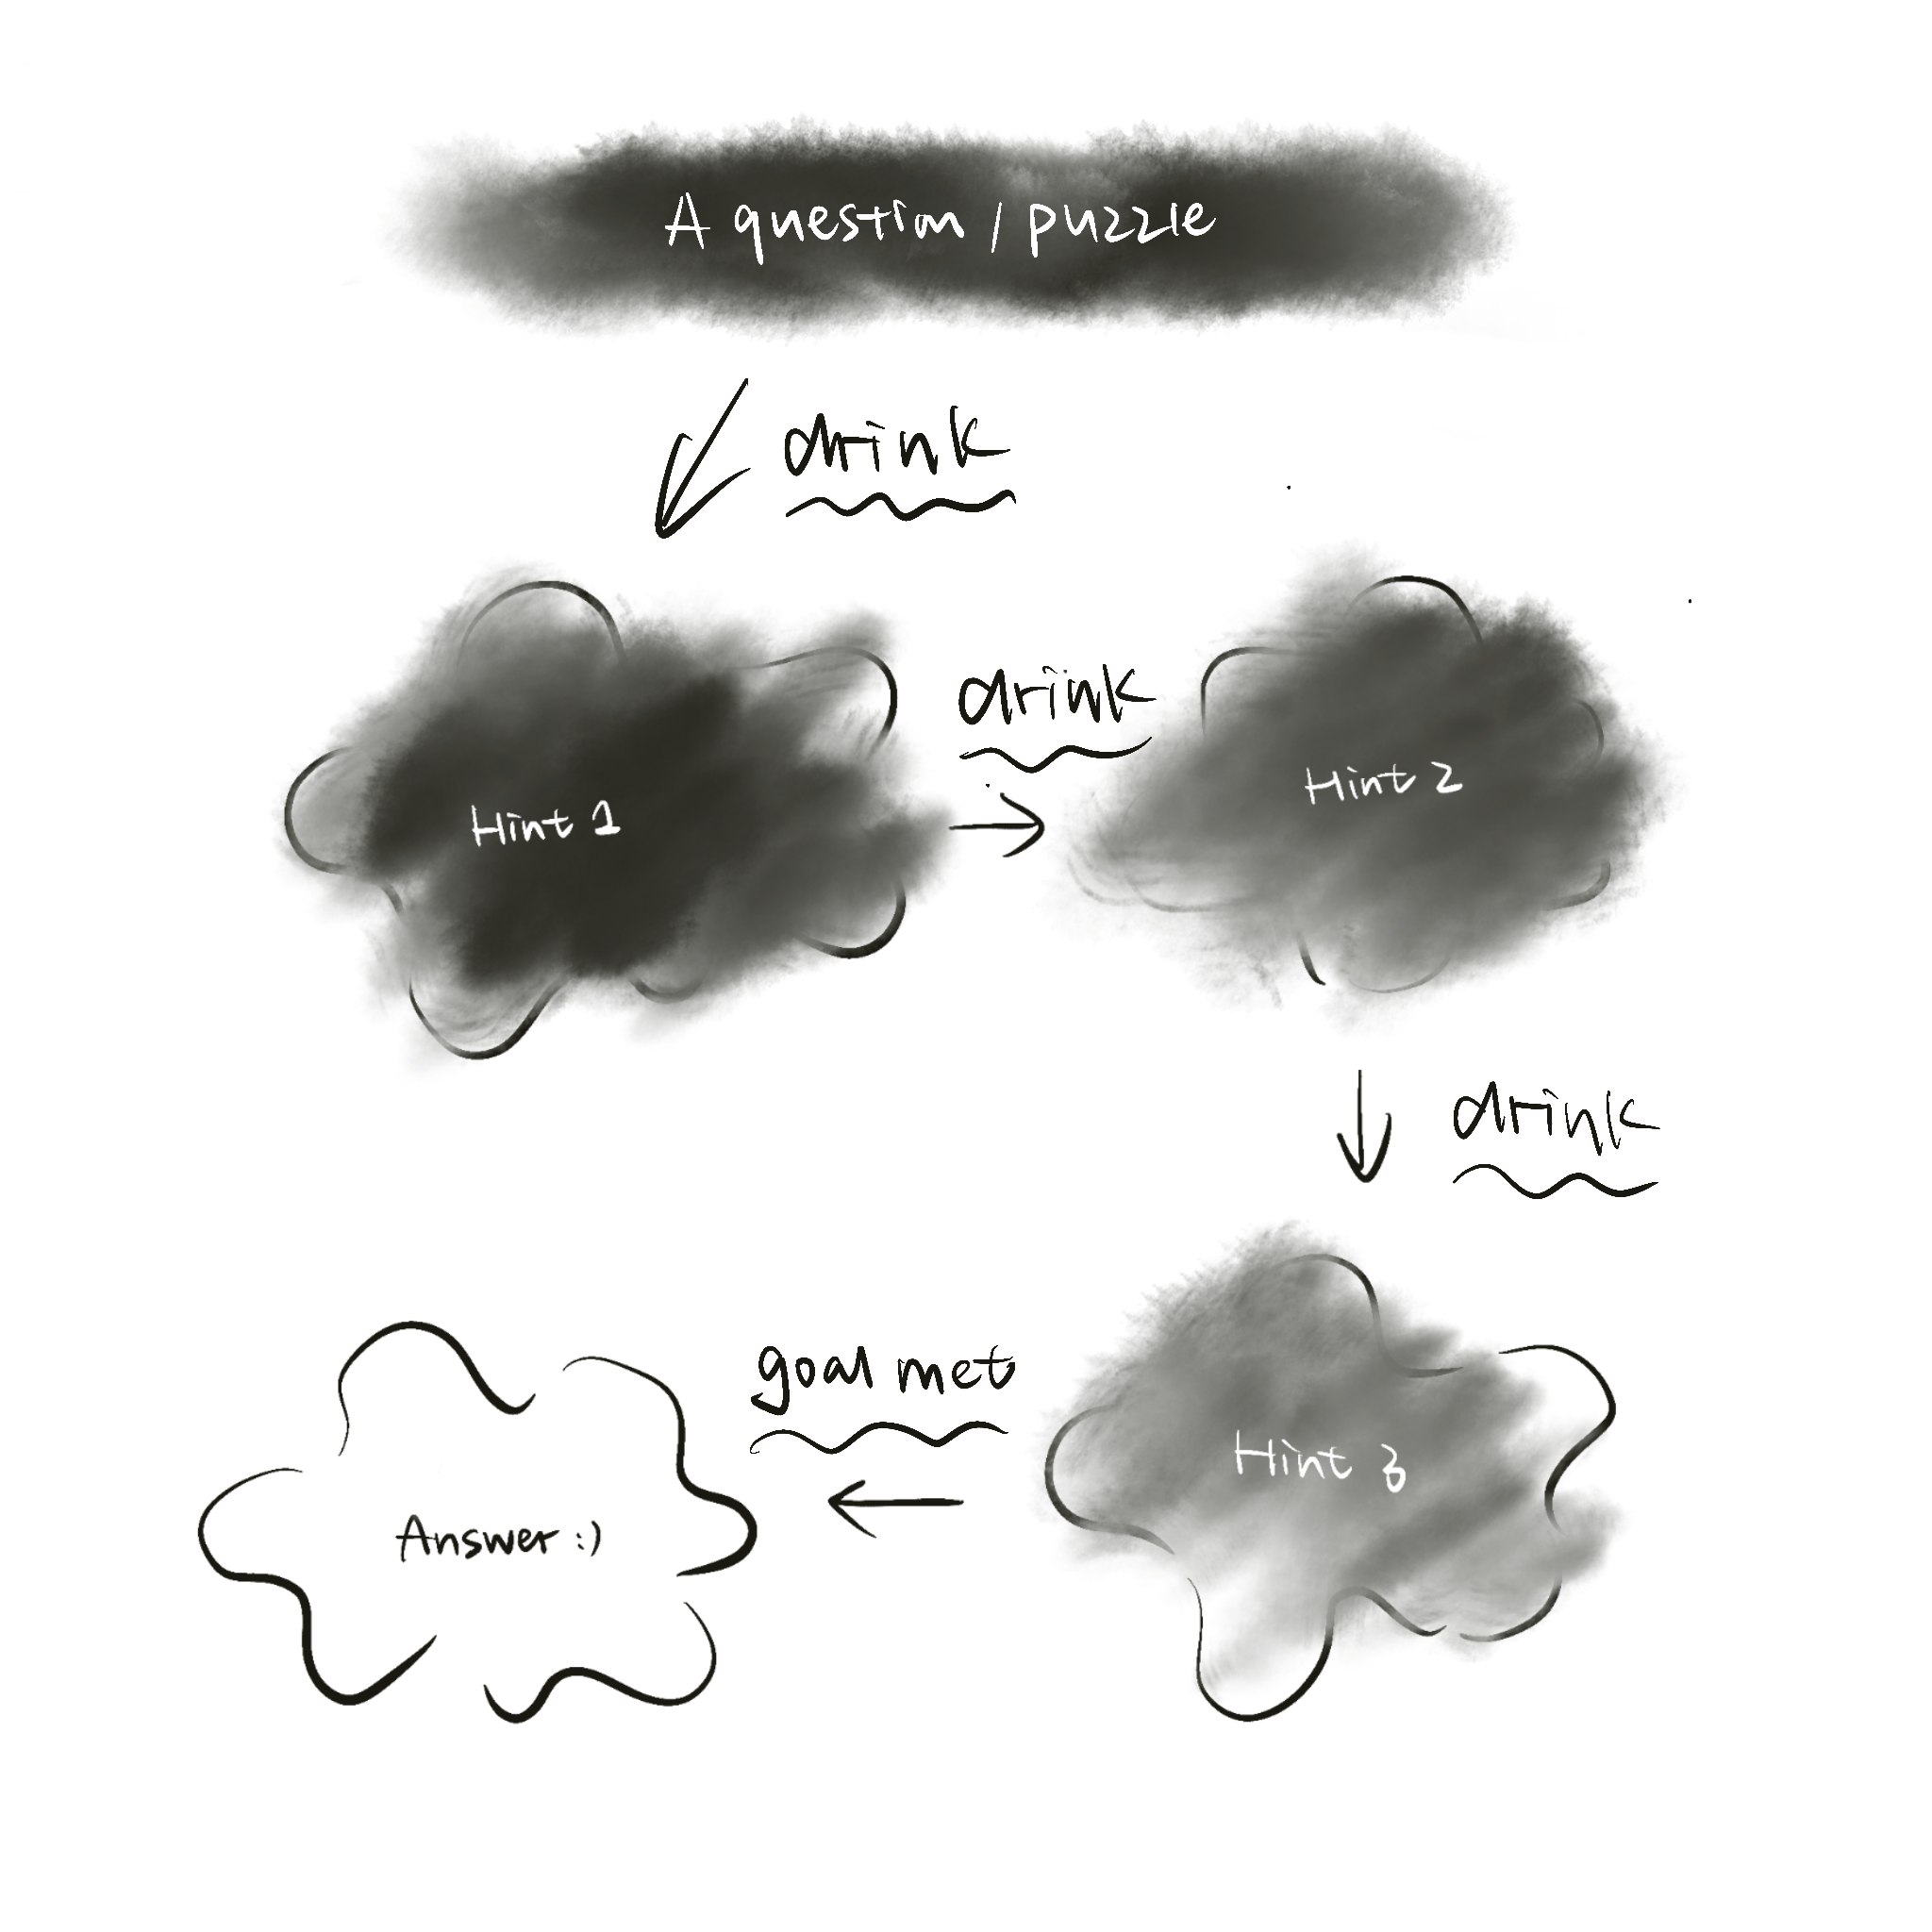 A question / puzzle
drink
Hint 1
drink
Hint 2
drink
Hint 3
goal met
Answer :)